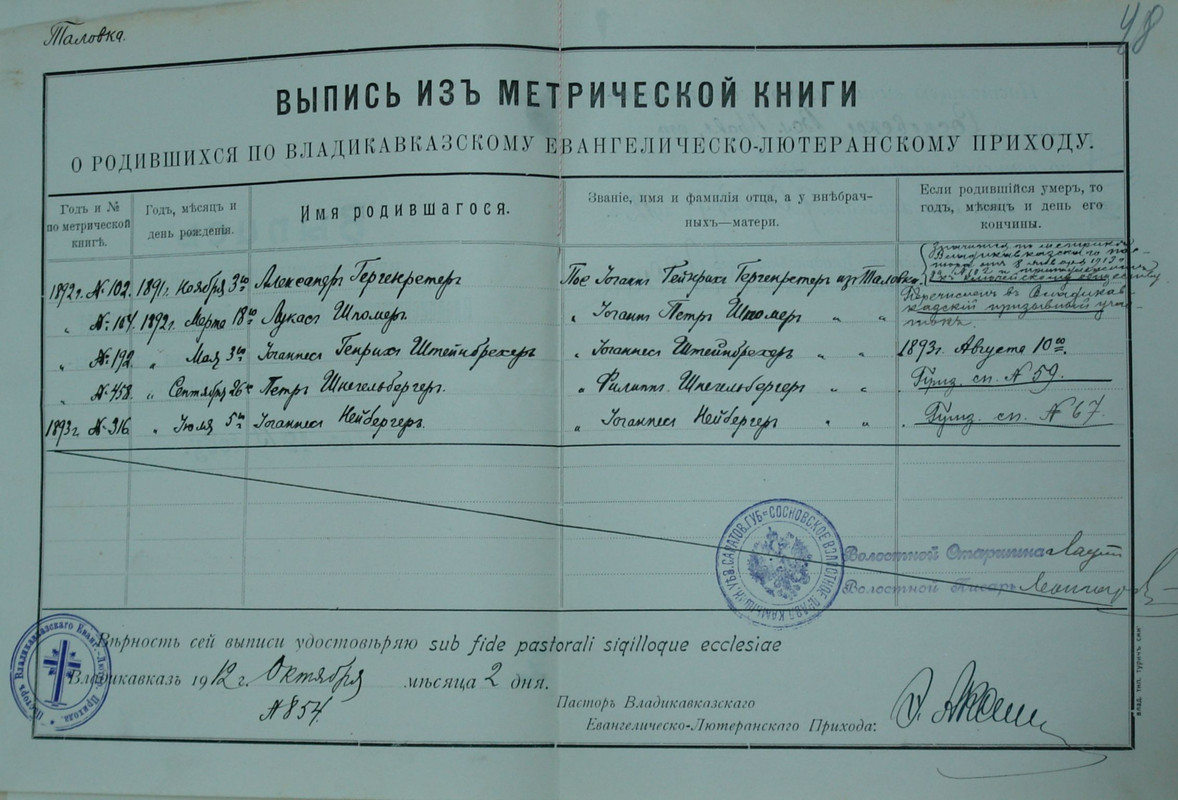 Таловка.
48
ВЫПИСЬ ИЗЪ МЕТРИЧЕСКОЙ КНИГИ
О РОДИВШИХСЯ ПО ВЛАДИКАВКАЗСКОМУ ЕВАНГЕЛИЧЕСКО-ЛЮТЕРАНСКОМУ ПРИХОДУ.
Годъ и № по метрической книгѣ.
Годъ, мѣсяцъ и день рожденія.
Имя родившагося.
Званіе, имя и фамилія отца, а у внѣбрач-
ныхъ—матери.
Если родившійся умеръ, то
годъ, мѣсяцъ и день его
кончины.
1892г. № 102. 1891г. Ноября 3го Александръ Гергенретеръ Пос. Іоганнъ Гейнрихъ Гергенретеръ изъ Таловки
„ № 104. 1892г. Марта 18го Лукасъ Шпомеръ „ Іоганнъ Петръ Шпомеръ „ „
Перечисленъ въ Владикав-
казскій призывный учас-
токъ.
„ № 192. „ Мая 3го Іоганнесъ Генрихъ Штейнбрехеръ „ Іоганнесъ Штейнбрехеръ „ „ 1893г. Августа 10го.
„ № 458. „ Сентября 26го Петръ Шпегельбергеръ „ Филиппъ Шпегельбергеръ „ „ Приз. сп. № 59.
1893г. № 316 „ Іюля 5го Іоганнесъ Нейбергеръ. „ Іоганнесъ Нейбергеръ „ „ Приз. сп. № 67.
СОСНОВСКОЕ ВОЛОСТНОЕ ПРАВЛ. КАМЫШ. УѢЗ. САРАТОВ. ГУБ.
Волостной Старшина
Волостной Писарь
Вѣрность сей выписи удостовѣряю sub fide pastorali sigilloque ecclesiae
Владикавказъ 1912 г. Октября мѣсяца 2 дня.
№ 854
Пасторъ Владикавказскаго
Евангелическо-Лютеранскаго Прихода:
Пасторъ Владикавказскаго Еванг.-Лютер. Прихода